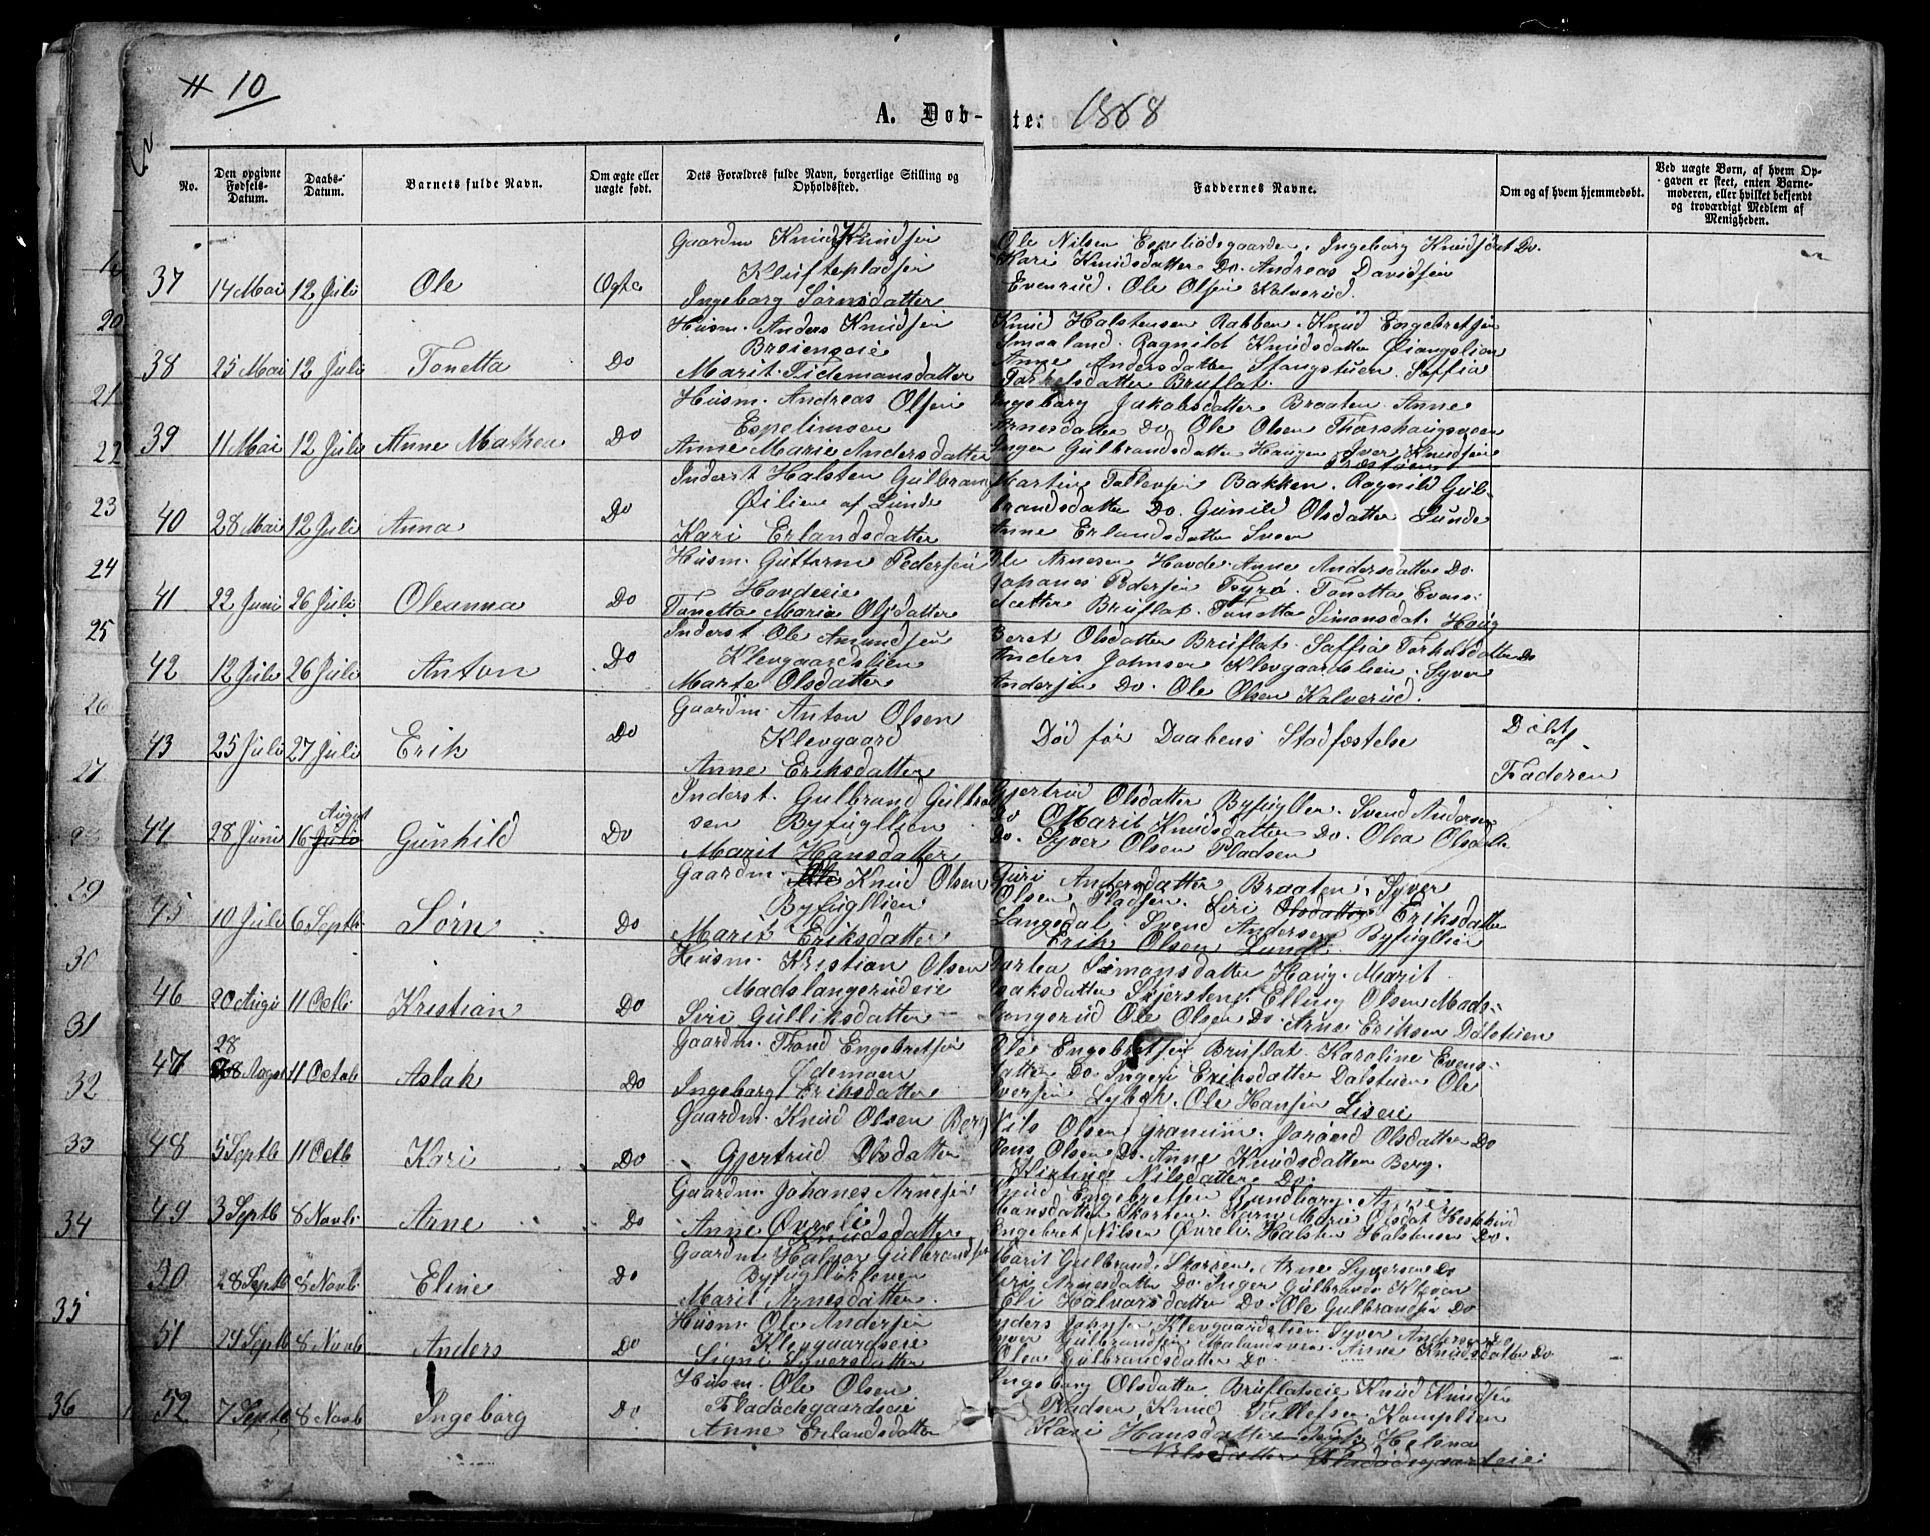 # 10
A. Døb-te: 1868
No.
Den opgivne Fødsels-Datum.
Daabs-Datum.
Barnets fulde Navn.
Om ægte eller uægte født.
Dets Forældres fulde Navn, borgerlige Stilling og Opholdsted.
Faddernes Navne.
Om og af hvem hjemmedøbt.
Ved uægte Børn, af hvem Op-
gaven er skeet, enten Barne-
moderen, eller hvilket bekjendt
og troværdigt Medlem af
Menigheden.
37 14 Mai 12 Juli Ole Ægte
Gaardm Knud Knudsen
Kluftepladsen
Ingeborg Sørnsdatter
Ole Nilsen Espeliødegaarden. Ingeborg Knudsdat Do.
Kari Knudsdatter Do. Andreas Davidsen
Evenrud. Ole Olsen Kalverud.
38 25 Mai 12 Juli Tonetta Do
Husm. Anders Knudsen
Brøienseie
Marit Tidemansdatter
Knud Halstensen Rabben. Knud Engebretsen
Smaaland. Ragnild Knudsdatter Øiangslien
Anne Andersdatter Stangstuen. Saffia
Torkelsdatter Bruflat.
39 11 Mai 12 Juli Anne Mathea Do
Husm. Andreas Olsen
Espelimoen
Anne Marie Andersdatter
Ingeborg Jakobsdatter Braaten Anne
Arnesdatter Do Ole Olsen Thorshaugmoen
Inger Gulbrandsdatter Haugen Iver Knudsen
40 28 Mai 12 Juli Anna Do
Inderst Halsten Gulbrands
Øilien af Lunde
Kari Erlandsdatter
Martin Tollevsen Bakken. Ragnild Gul-
brandsdatter Do. Gunild Olsdatter Lunde
Anne Erlandsdatter Sveen
41 22 Juni 26 Juli Oleanna Do
Husm. Guttorm Pedersen
Hovdeeie
Tonetta Marie Olsdatter
Ole Arnesen Hovde Anne Andersdatter Do
Johanes Pedersen Tsyrø. Tonetta Evens-
datter Bruflat. Tonetta Simonsdat. Haug
42 12 Juli 26 Juli Anton Do
Inderst Ole Amundsen
Klevgaardslien
Marte Olsdatter
Beret Olsdatter Bruflat. Saffia Torkelsdatter Do
Anders Johnsen Klevgaardslien. Syver
Andersen Do. Ole Olsen Kalverud.
43 25 Juli 27 Juli Erik Do
Gaardm. Anton Olsen
Klevgaard
Anne Eriksdatter
Død før Daabens Stadfæstelse
Døbt
af
Faderen
44 28 Juni 16 August Juli Gunhild Do
Inderst. Gulbrand Gulbrand
sen Byfugllien
Marit Hansdatter
Gjertrud Olsdatter Byfugllien. Svend Andersen
Do Marit Knudsdatter Do. Olea Olsdatte
Do. Syver Olsen Pladsen
45 10 Juli 6 Septb. Sørn Do
Gaardm. Knud Olsen
Byfugllien
Marit Eriksdatter
Guri Andersdatter Braaten. Syver
Olsen Pladsen. Siri Olsdatter Eriksdatter
Langedal. Svend Andersen Byfugllien
Erik Olsen Lunde
46 20 Augu 11 Octb. Kristian Do
Husm. Kristian Olsen
Madslangerudeie
Siri Gulliksdatter
Dorthea Simonsdatter Haug. Marit
Isaksdatter Skjersten. Elling Olsen Mads-
langerud Ole Olsen Do. Arne Eriksen Dølstuen
47 28 August 11 Octob Aslak Do
Gaardm. Thond Engebretsen
Ødemoen
Ingeborg Eriksdatter
Ole Engebretsen Bruflat. Karoline Evens-
datter Do Ingeri Eriksdatter Dalstuen Ole
Iversen Lybek. Ole Hansen Liseie
48 5 Septb 11 Octb Kari Do
Gaardm. Knud Olsen Berg
Gjertrud Olsdatter
Nils Olsen Granum. Jorønd Olsdatter Do
Hans Olsen Do. Anne Knudsdatter Berg.
Kirstine Nilsdatter Do.
49 3 Septb 8 Novb. Arne Do
Gaardm. Johanes Arnesen
Øvreli
Anne Knudsdatter
Knud Engebretsen Rundborg. Anne
Hansdatter Skorten. Karen Marie Olsdat Hestekind
Engebret Nilsen Øvreli. Halsten Halstensen Do.
50 28 Septb 8 Novb. Eline Do
Gaardm. Halvor Gulbrandsen
Marit Arnesdatter.
Marit Gulbrand. Skorten. Arne Syversen Do
Siri Arnesdatter Do Inger Gulbrands Kleven
Eli Halvorsdatter Do. Ole Gulbrandsen Do
51 29 Septb 8 Novb Anders Do
Husm. Ole Andersen
Klevgaardseie
Signi Syversdatter
Anders Johnsen Klevgaardslien. Syver Andersen Do
Syver Gulbrandsen Anne Knudsdatter Do
Olea Gulbrandsdatter Do.
52 7 Septb 8 Novb Ingeborg Do
Husm. Ole Olsen
Fladødegaardseie
Anne Erlandsdatter
Ingeborg Olsdatter. Bruflatseie Knud Knudsen
Pladsen Knud Tollefsen Kompelien
Kari Hansdatter Helena
Nilsdatter Fladødegaardseie
20
21
22
23
24
25
26
27
29
30
31
32
33
34
35
36